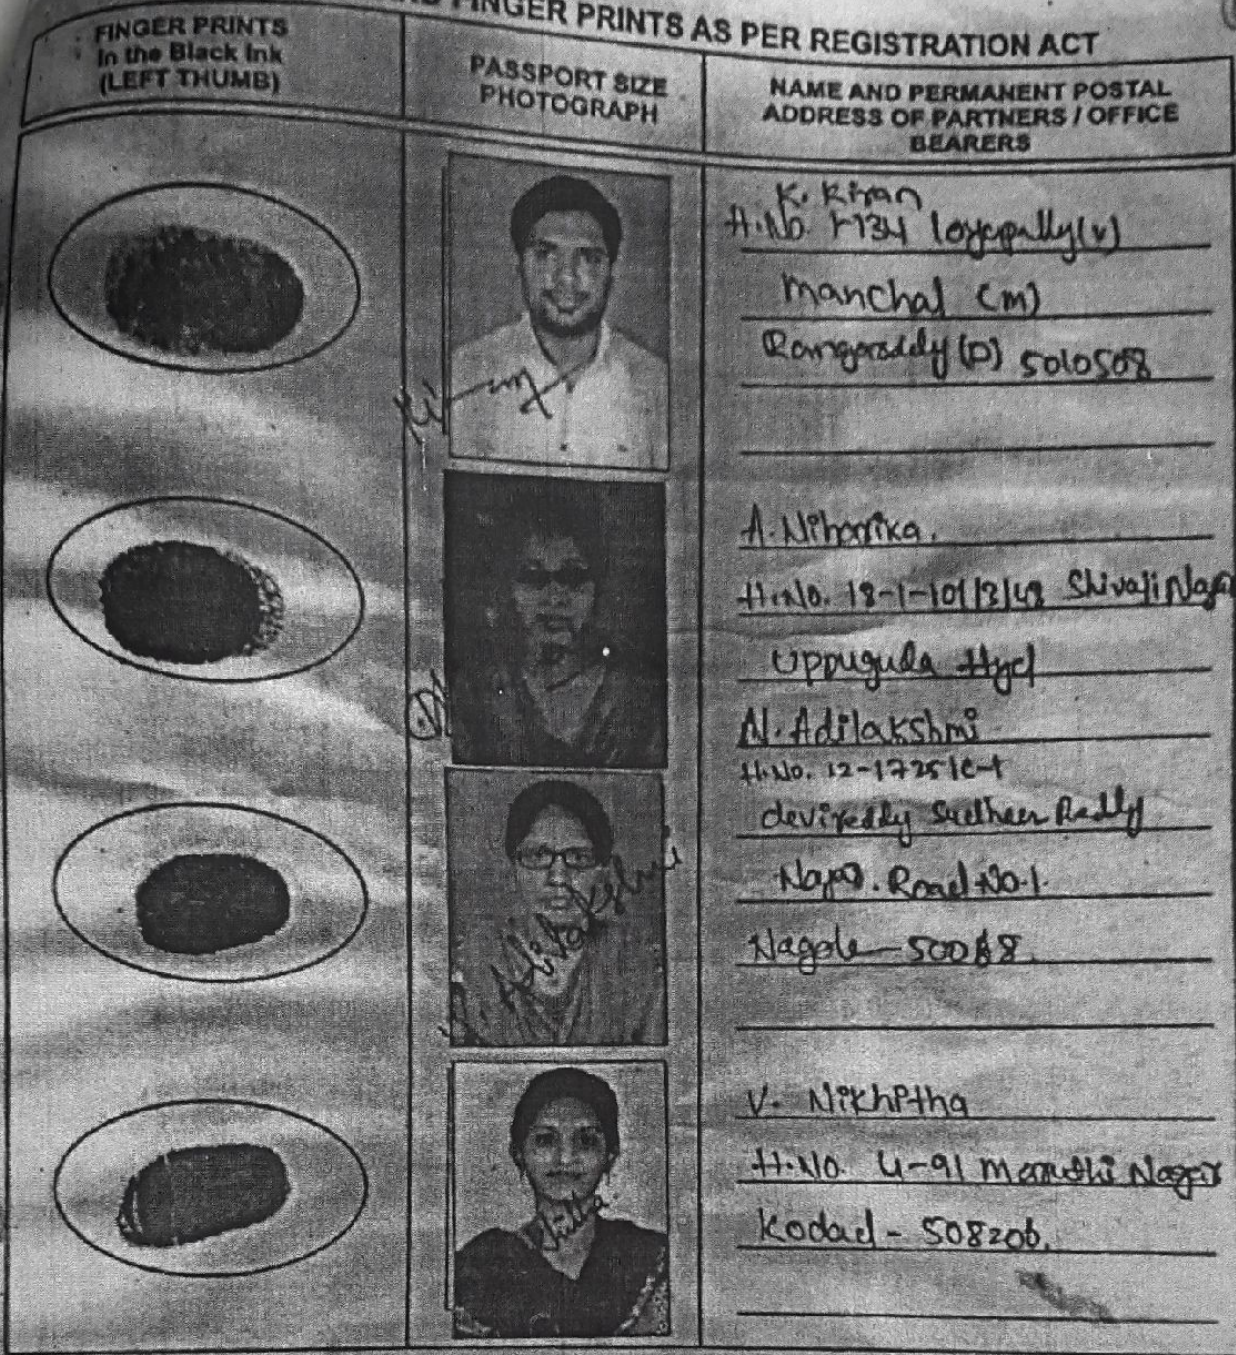 FINGER PRINTS AS PER REGISTRATION ACT
FINGER PRINTS
In the Black Ink
(LEFT THUMB)
PASSPORT SIZE
PHOTOGRAPH
NAME AND PERMANENT POSTAL
ADDRESS OF PARTNERS / OFFICE
BEARERS
K. Kiran
H.No. 1-134 (v)
Manchal (m)
(D) 5010508
A. Niharika.
H.No. 18-1-101/3/48 Shivaji
Uppuguda Hyd
N. Adilakshmi
H.No. 12-1725/C-1
devireddy Sudheer Reddy
Nagar. Road No.1.
Nagole
V. Nikhitha
H.No. 4-91 Maruthi Nagar
Kodad - 508206.